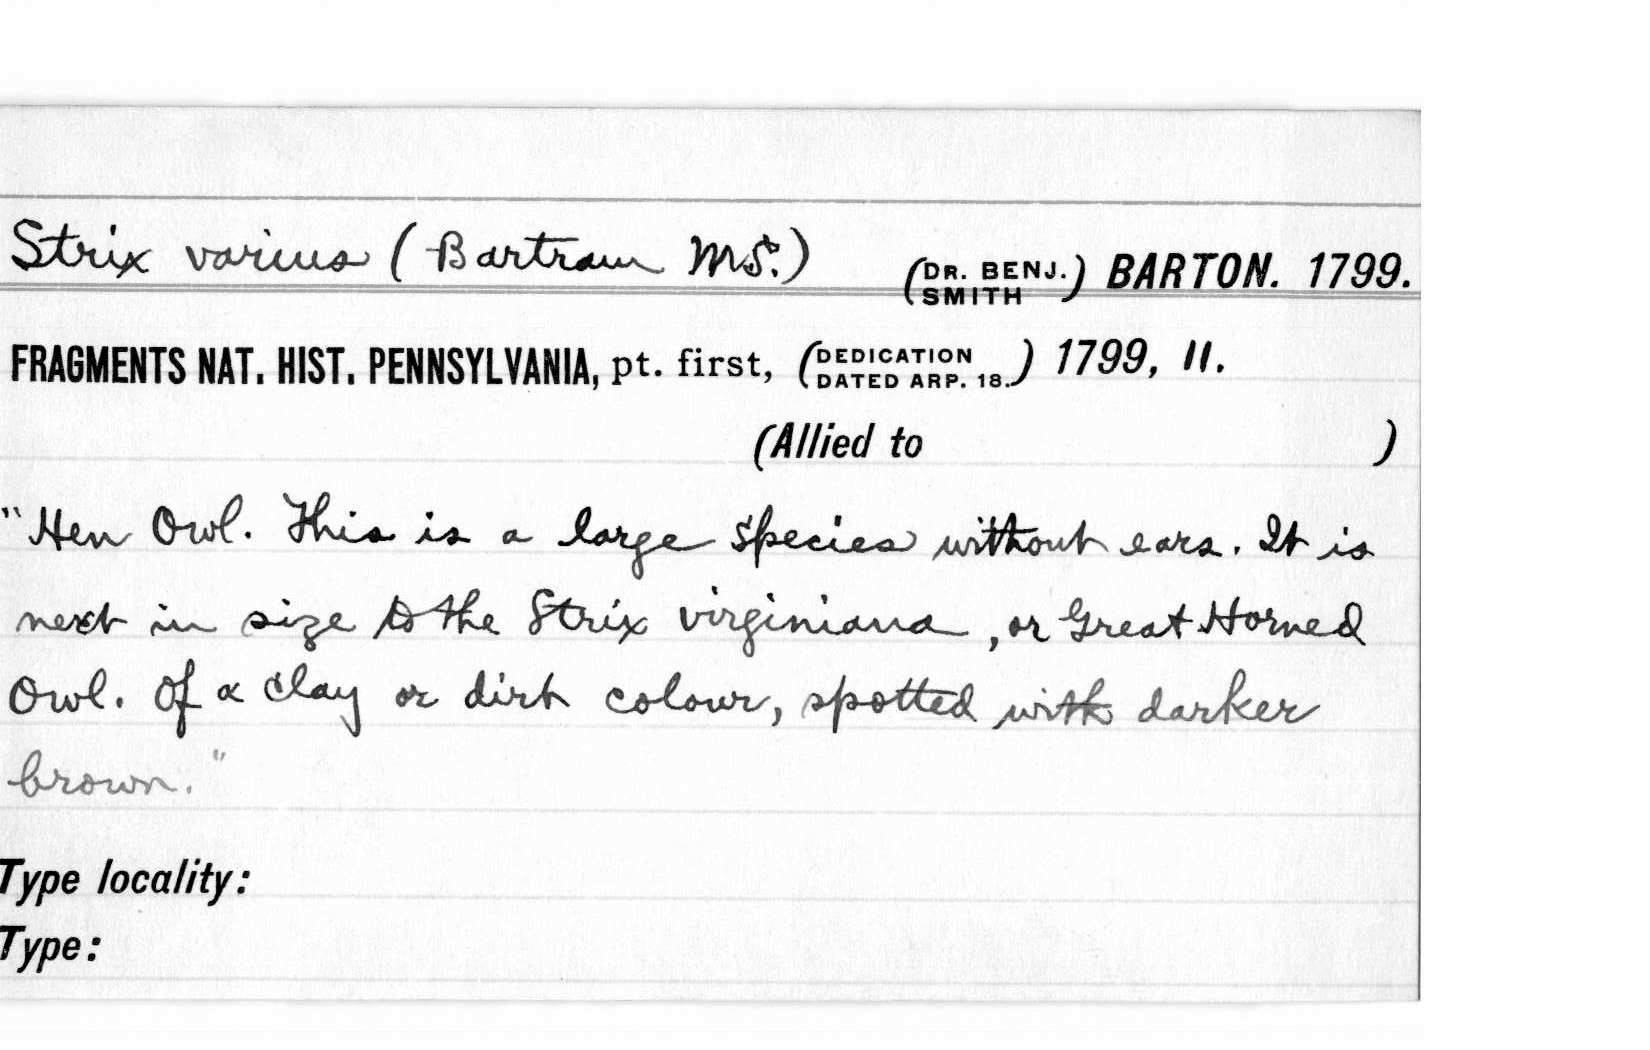 Strix varius (Bartram MS.) (DR. BENJ. SMITH) BARTON. 1799.
FRAGMENTS NAT. HIST. PENNSYLVANIA, pt. first, (DEDICATION DATED ARP. 18.) 1799, 11.
(Allied to )
"Hen Owl. This is a large species without ears. It is
next in size to the Strix virginiana, or Great Horned
Owl. Of a clay or dirt colour, spotted with darker
brown."
Type locality:
Type: